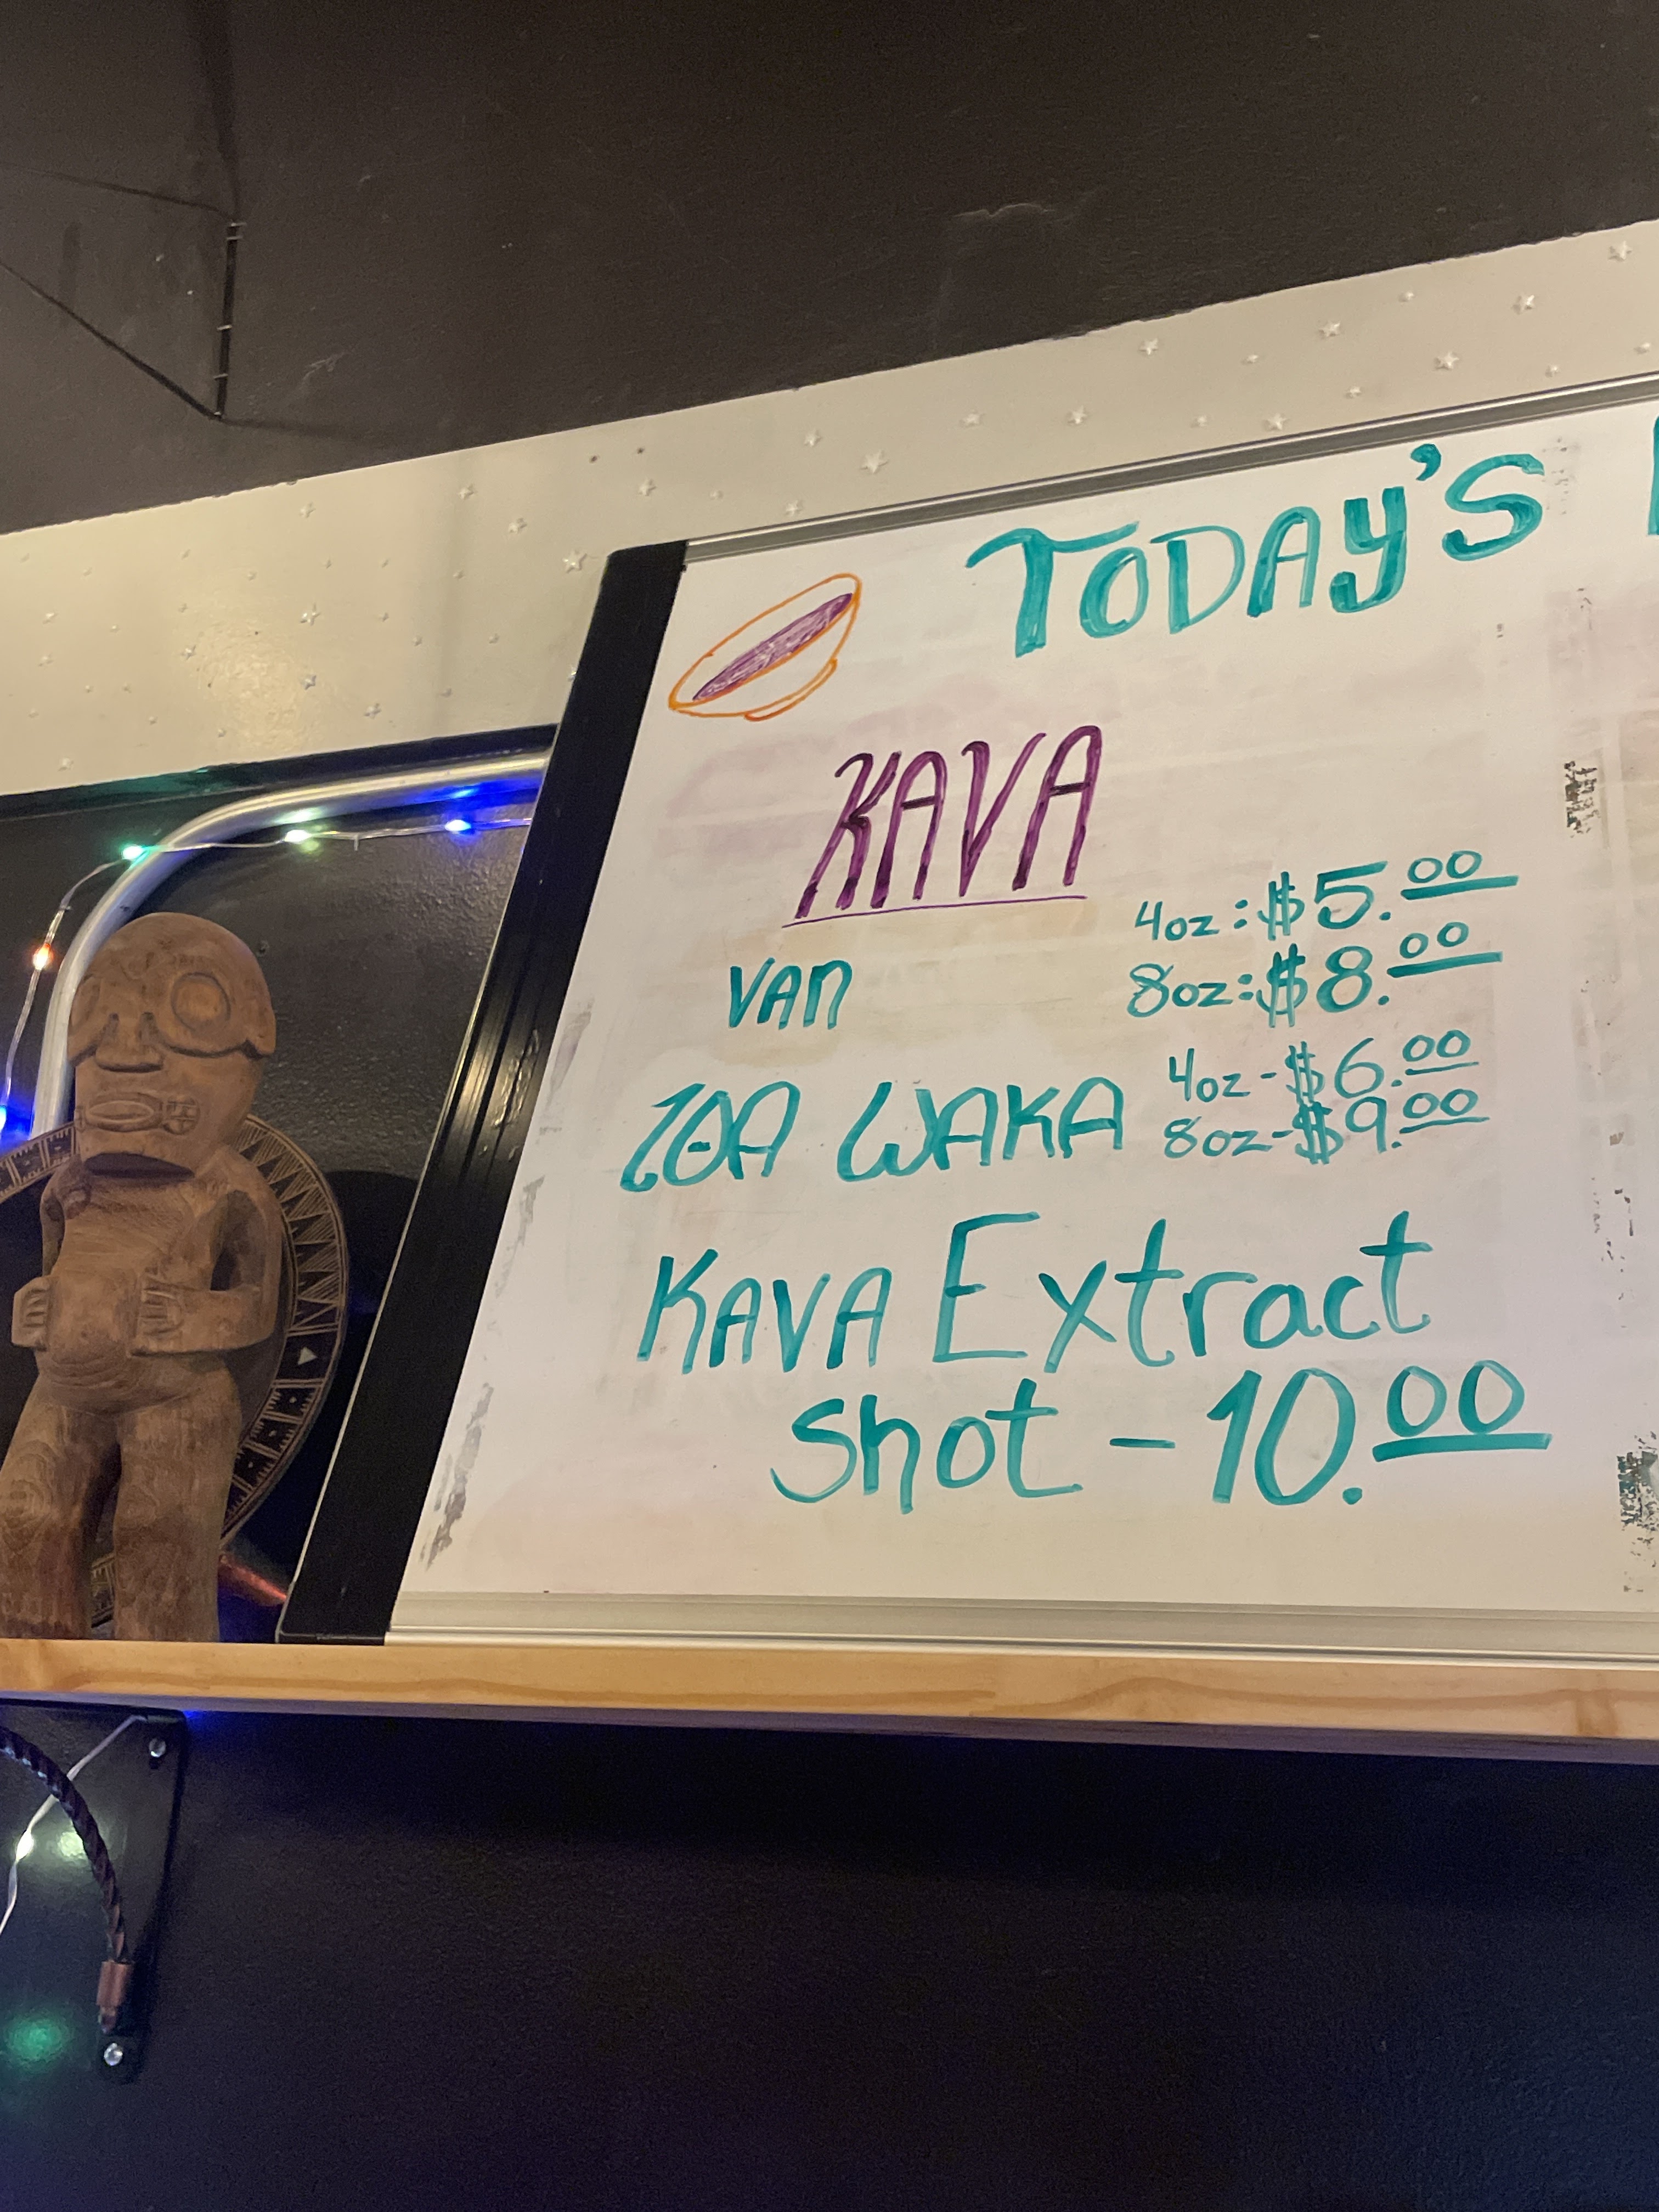 TODAY'S
KAVA
VAN 4oz: $5.00
8oz: $8.00
LOA WAKA 4oz - $6.00
8oz - $9.00
KAVA Extract
Shot - 10.00